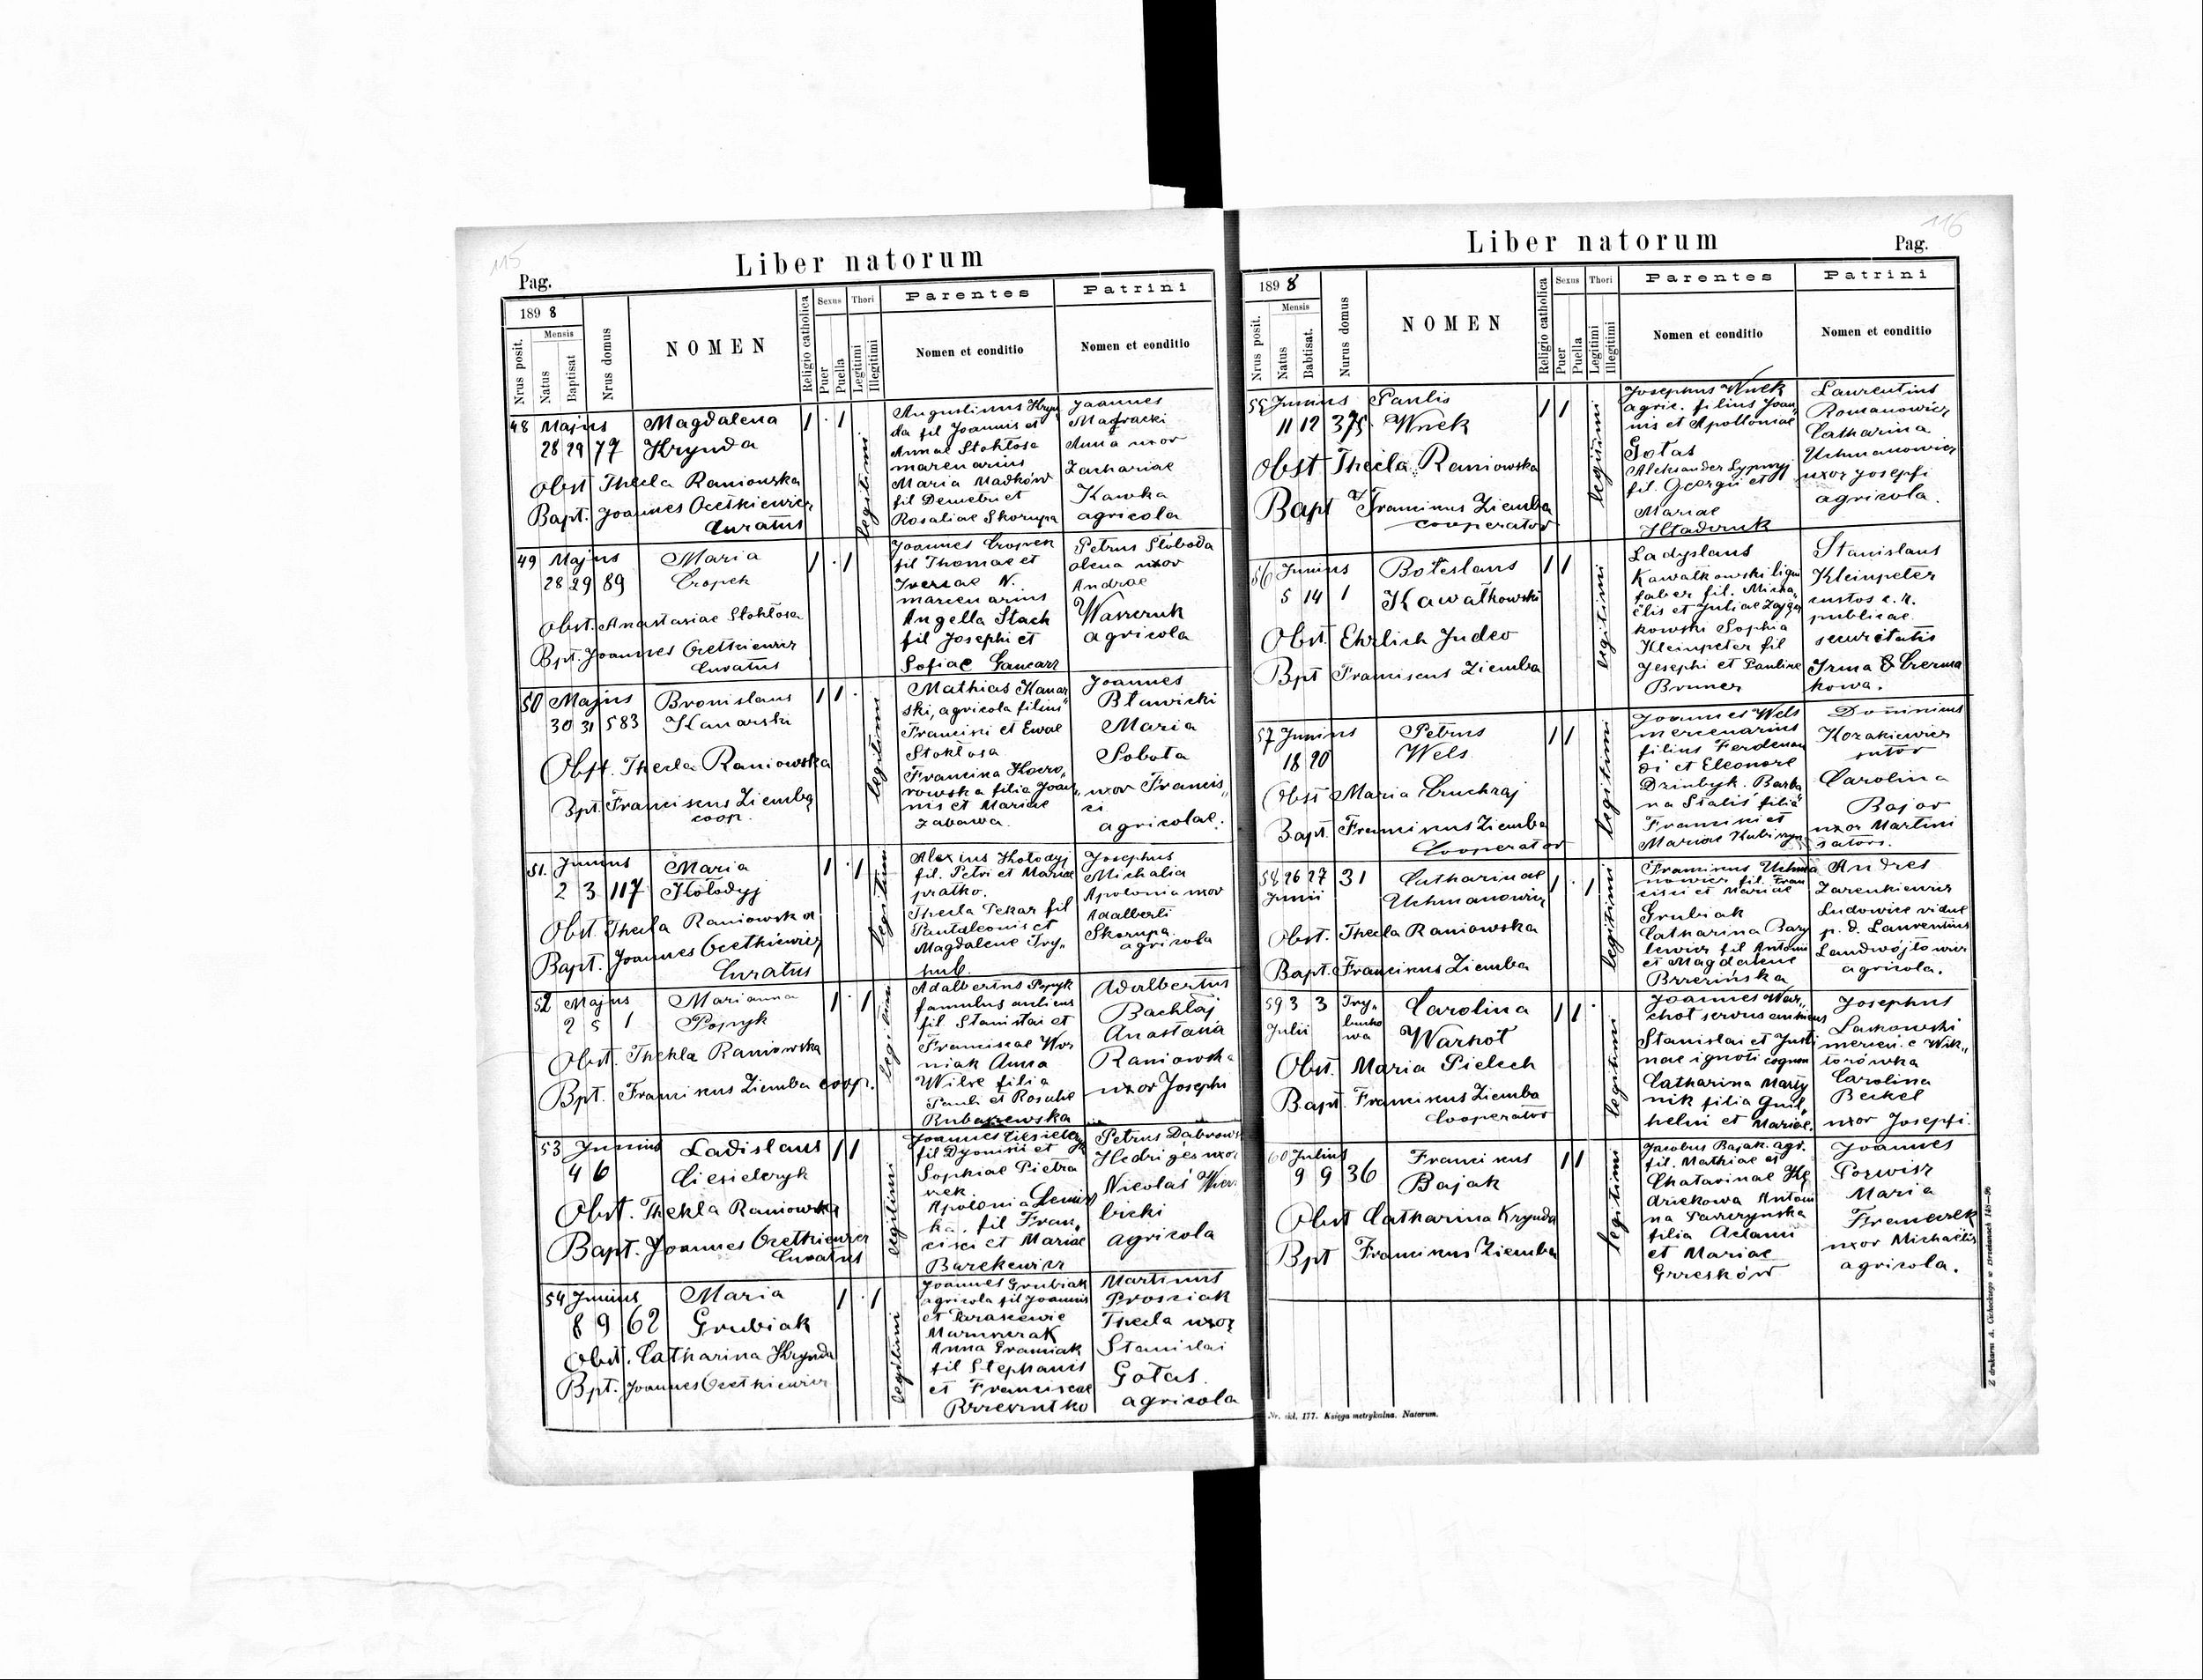 115
Liber natorum
Pag.
189 8
Nrus posit.
Mensis
Natus
Baptisat
Nrus domus
NOMEN
Religio catholica
Sexus
Puer
Puella
Thori
Legitimi
Illegitimi
Parentes
Nomen et conditio
Patrini
Nomen et conditio
48 Majus
28 29 77
Magdalena
Krynda
Obst Thecla Raniowska
Bapt. Joannes Ocetkiewicz
Curatus
legitimi
Augustinus Kryn
da fil Joannis et
Annae Stokłosa
mercenarius
Maria Madków
fil Demetri et
Rosaliae Skorupa
Joannes
Anna uxor
Zachariae
Kawka
agricola
49 Majus
28 29 89
Maria
Cropek
Obst. Anastasiae Stokłosa
Bpt. Joannes Ocetkiewicz
Curatus
Joannes Cropek
fil Thomae et
N.
mercenarius
Angella Stach
fil Josephi et
Sofiae Gancarz
Petrus Słoboda
olena uxor
Andrae
agricola
50 Majus
30 31 583
Bronislaus
Kanarski
Obst. Thecla Raniowska
Bpt. Franciscus Ziemba
coop.
legitimi
Mathias Kanar
ski, agricola filius
Francisci et Ewae
Stokłosa
Francisca
rowska filia Joan„
nis et Mariae
Zabawa.
Joannes
Bławicki
Maria
Sobota
uxor Francis„
ci
agricolae.
51. Junius
2 3 117
Maria
Kołodyj
Obst. Thecla Raniowska
Bapt. Joannes Ocetkiewicz
Curatus
legitimi
Alexius Kołodyj
fil. Petri et Mariae
pratko.
Thecla Pekar fil
Pantaleonis et
Magdalene Try„
hub.
Josephus
Michalia
Apolonia uxor
Adalberti
Skorupa
agricola
52 Majus
2 5 1
Marianna
Popyk
Obst. Thekla Raniowska
Bpt. Franciscus Ziemba coop.
legitimi
Adalbertus Popyk
famulus aulicus
fil Stanislai et
Franciscae Woz
niak Anna
filia
Pauli et Rosalie
Adalbertus
Bachtaj
Anastasia
Raniowska
uxor Josephi
53 Junius
4 6
Ladislaus
Ciesielczyk
Obst. Thekla Raniowska
Bapt. Joannes Ocetkiewicz
Curatus
legitimi
Joannes Ciesielczyk
fil Dyonisii et
Sophiae Pietra
szek
Apolonia
ka. fil Fran„
cisci et Mariae
Barckewicz
Petrus Dabrows
Nicolas
bicki
agricola
54 Junius
8 9 62
Maria
Grubiak
Obst. Catharina Krynda
Bpt. Joannes Ocetkiewicz
legitimi
Joannes Grubiak
agricola fil Joannis
et Paraskewie
Anna
fil Stephanis
et Franciscae
Martinus
Prosciak
Thecla uxor
Stanislai
Gołas.
agricola
116
Liber natorum
Pag.
189 8
Nrus posit.
Mensis
Natus
Babtisat.
Nurus domus
NOMEN
Religio catholica
Sexus
Puer
Puella
Thori
Legitimi
Illegitimi
Parentes
Nomen et conditio
Patrini
Nomen et conditio
55 Junius
11 12 375
Paulis
Wnek
Obst Thecla Raniowska
Bapt Franciscus Ziemba
cooperator
legitimi
Josephus Wnek
agric. filius Joan„
nis et Apolloniae
Gołas
Aleksander
fil. Georgii et
Mariae
Laurentius
Romanowicz
Catharina
Uchmanowicz
uxor Josepfi
agricola.
56 Junius
5 14 1
Bołeslaus
Kawałkowski
Obst. Ehrlich Judeo
Bpt Franciscus Ziemba
legitimi
Ladyslaus
Kawałkowski ligni
faber fil. Micha„
elis et Juliae
kowski Sophia
Kleinpeter fil
Josephi et Pauline
Bruner
Stanislaus
Kleinpeter
custos c. k.
publicae
securitatis
Irma
kowa.
57 Junius
18 20
Petrus
Wels
Obst Maria Cruchraj
Bapt. Franciscus Ziemba
Cooperator
legitimi
Joannes Wels
mercenarius
filius Ferdenan
di et Eleonore
Barba
na Stalis filia
Francisci et
Mariae
Dominicus
Kozakiewicz
sutor
Carolina
Bajor
uxor Martini
58 26 27 31
Junii
Catharinae
Uchmanowicz
Obst. Thecla Raniowska
Bapt. Franciscus Ziemba
legitimi
Franciscus Uchma
nowicz fil. Fran
cisci et Mariae
Grubiak
Catharina Bazy
lewicz fil Antonii
et Magdalene
Brzezińska
Andres
Zarenkiewicz
Ludowice vidue
p. d. Laurentius
Landwójtowicz
agricola.
59 3 3
Julii
Try„
buncho
wa
Carolina
Warhoł
Obst. Maria Pielech
Bapt. Franciscus Ziemba
Cooperator
legitimi
Joannes War„
chot servus
Stanislai et Justi
nae ignoti cognom
Catharina Marty
nik filia Guil„
helmi et Mariae.
Josephus
Laskowski
mercen. e Wik„
torówka
Carolina
Beckel
uxor Josepfi.
60 Julius
9 9 36
Franciscus
Bajak
Obst Catharina Krynda
Bpt Franciscus Ziemba
legitimi
Jacobus Bajak. agr.
fil. Mathiae et
Chatarinae Kę
dziekowa Antoni
na
filia Adami
et Mariae
Grzesków
Joannes
Maria
Franczek
uxor Michaelis
agricola.
Nr. skł. 177. Księga metrykalna. Natorum.